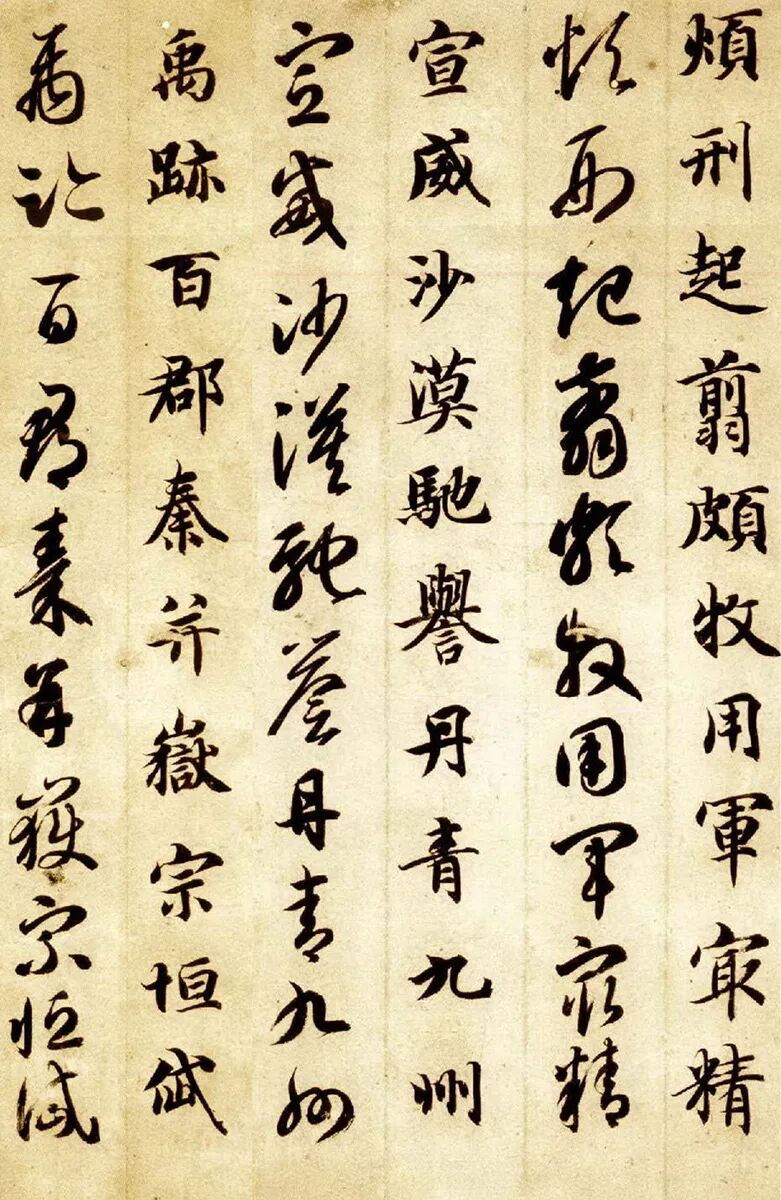 煩刑起翦頗牧用軍㝡精
煩刑起翦頗牧用軍㝡精
宣威沙漠馳譽丹青九州
宣威沙漠馳譽丹青九州
禹跡百郡秦并嶽宗恒岱
禹跡百郡秦并嶽宗恒岱